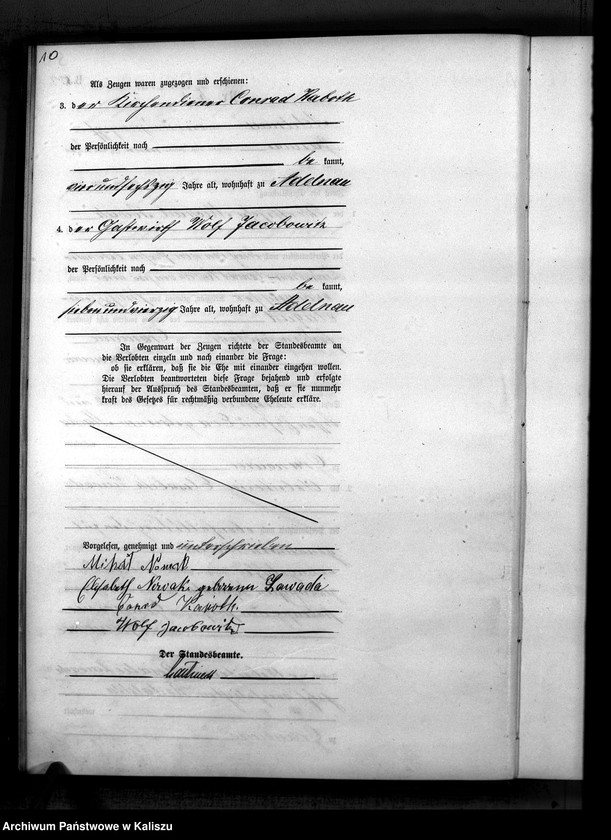 10
Als Zeugen waren zugezogen und erschienen:
3. der Kirchendiener Conrad Kaboth
der Persönlichkeit nach
be kannt,
vierundsechszig Jahre alt, wohnhaft zu Adelnau
4. der Gastwirth Wolf Jacobowitz
der Persönlichkeit nach
be kannt,
siebenundvierzig Jahre alt, wohnhaft zu Adelnau
In Gegenwart der Zeugen richtete der Standesbeamte an
die Verlobten einzeln und nach einander die Frage:
ob sie erklären, daß sie die Ehe mit einander eingehen wollen.
Die Verlobten beantworteten diese Frage bejahend und erfolgte
hierauf der Ausspruch des Standesbeamten, daß er sie nunmehr
kraft des Gesetzes für rechtmäßig verbundene Eheleute erkläre.
Vorgelesen, genehmigt und unterschrieben
Michał Nowak
Elisabeth Nowak geborene Zawada
Conrad Kaboth
Wolf Jacobowitz
Der Standesbeamte.
Archiwum Państwowe w Kaliszu